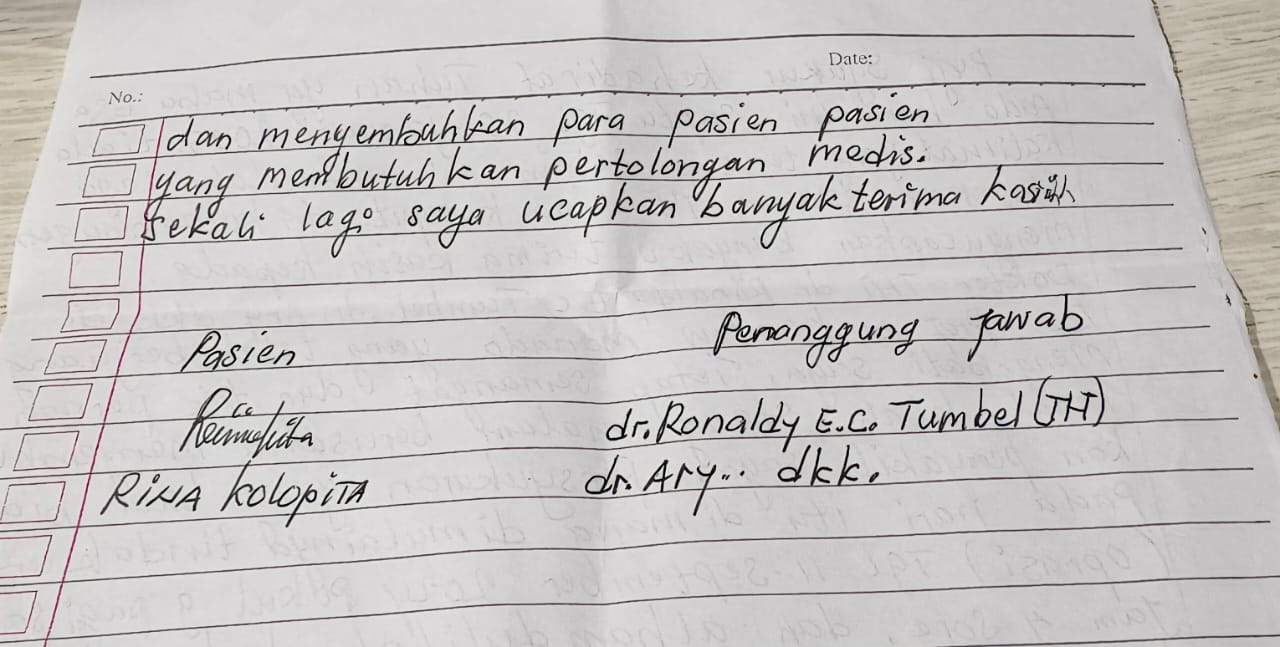 Date:
No.:
dan menyembuhkan para pasien pasien
yang membutuhkan pertolongan medis.
sekali lagi saya ucapkan banyak terima kasih
Pasien
Penanggung jawab
dr. Ronaldy E.C. Tumbel (THT)
dr. Ary... dkk.
RINA KOLOPITA